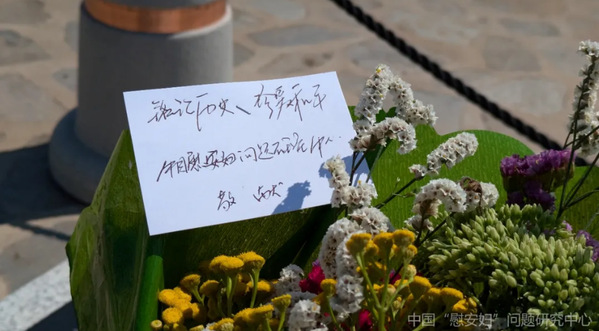 铭记历史、珍爱和平
中国慰安妇问题研究中心
敬献
中国“慰安妇”问题研究中心